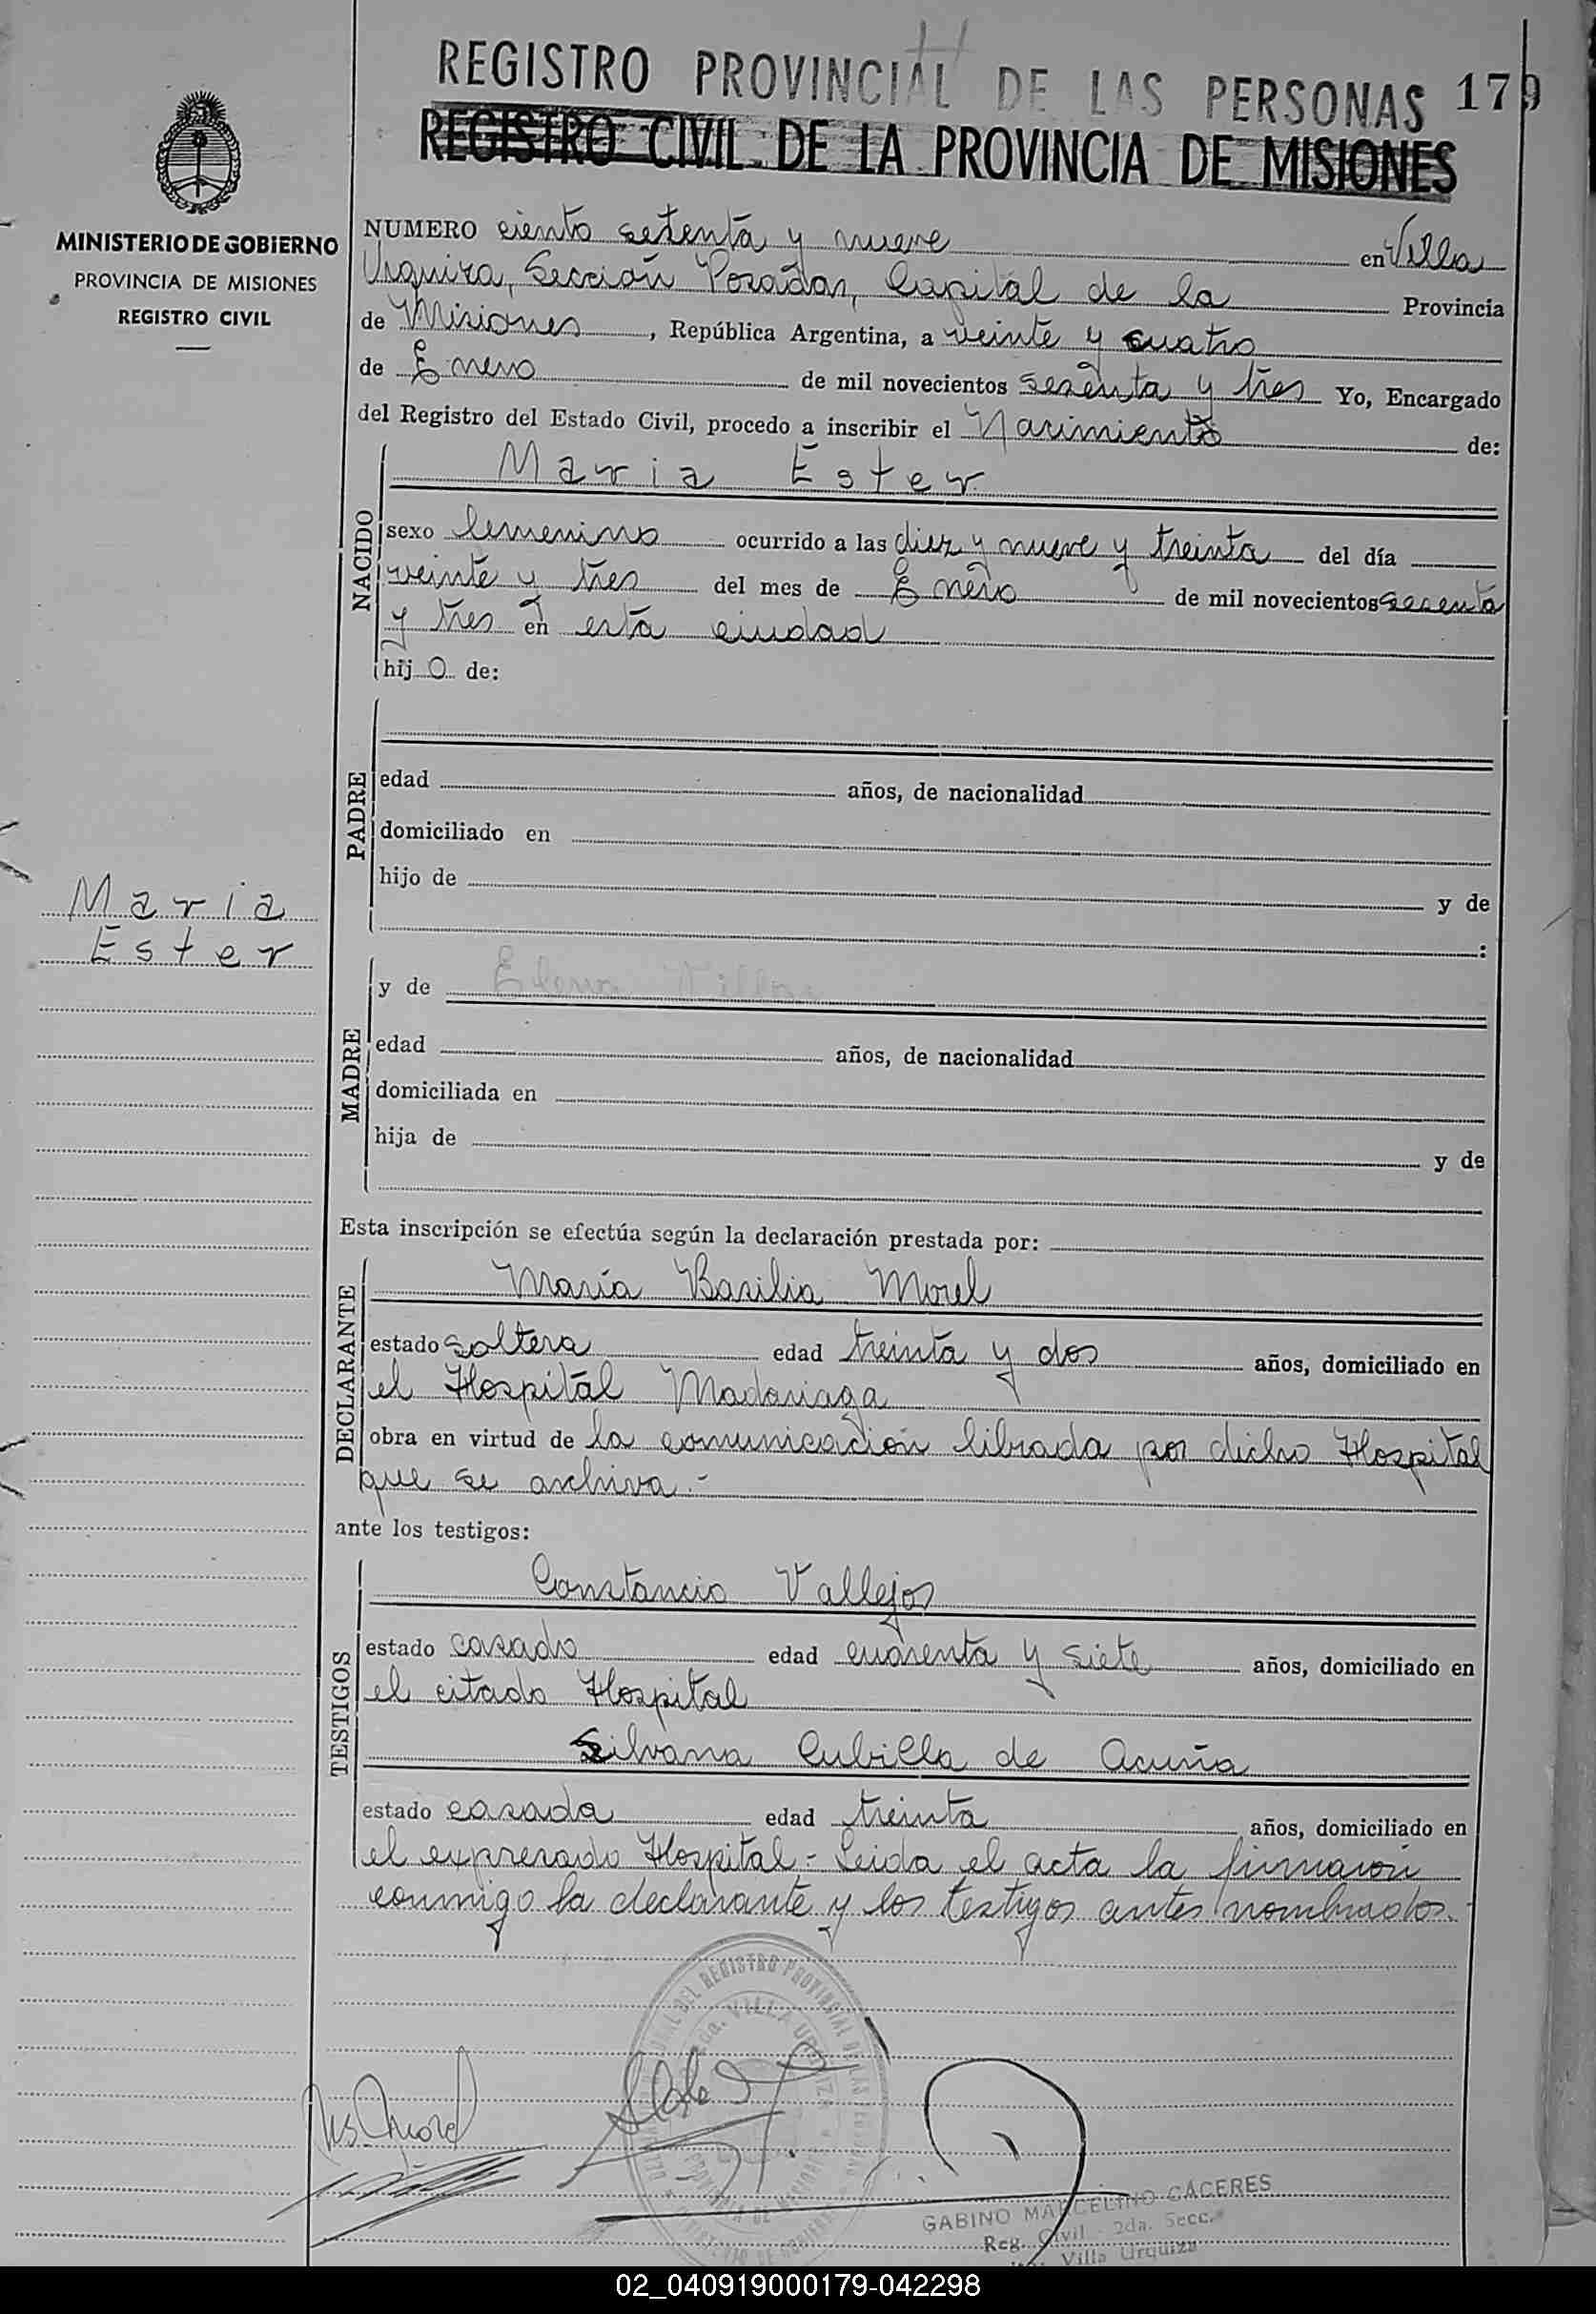 REGISTRO PROVINCIAL DE LAS PERSONAS 179
REGISTRO CIVIL DE LA PROVINCIA DE MISIONES
MINISTERIO DE GOBIERNO
PROVINCIA DE MISIONES
REGISTRO CIVIL
NUMERO ciento setenta y nueve en Villa
Urquiza, Sección Posadas, Capital de la Provincia
de Misiones, República Argentina, a veinte y cuatro
de Enero de mil novecientos sesenta y tres Yo, Encargado
del Registro del Estado Civil, procedo a inscribir el Nacimiento de:
Maria Ester
NACIDO
sexo femenino ocurrido a las diez y nueve y treinta del día
veinte y tres del mes de Enero de mil novecientos sesenta
y tres en esta ciudad
hij o de:
PADRE
edad años, de nacionalidad
domiciliado en
hijo de y de
:
Maria
Ester
MADRE
y de Elena
edad años, de nacionalidad
domiciliada en
hija de y de
Esta inscripción se efectúa según la declaración prestada por:
DECLARANTE
María Basilia Morel
estado soltera edad treinta y dos años, domiciliado en
el Hospital Madariaga
obra en virtud de la comunicación librada por dicho Hospital
que se archiva.-
ante los testigos:
TESTIGOS
Constancio Vallejos
estado casado edad cuarenta y siete años, domiciliado en
el citado Hospital
Silvana Cubilla de Acuña
estado casada edad treinta años, domiciliado en
el expresado Hospital.- Leida el acta la firmaron
conmigo la declarante y los testigos antes nombrados.
Morel
GABINO MARCELINO CÁCERES
Reg. Civil - 2da. Secc.
Villa Urquiza
02_040919000179-042298